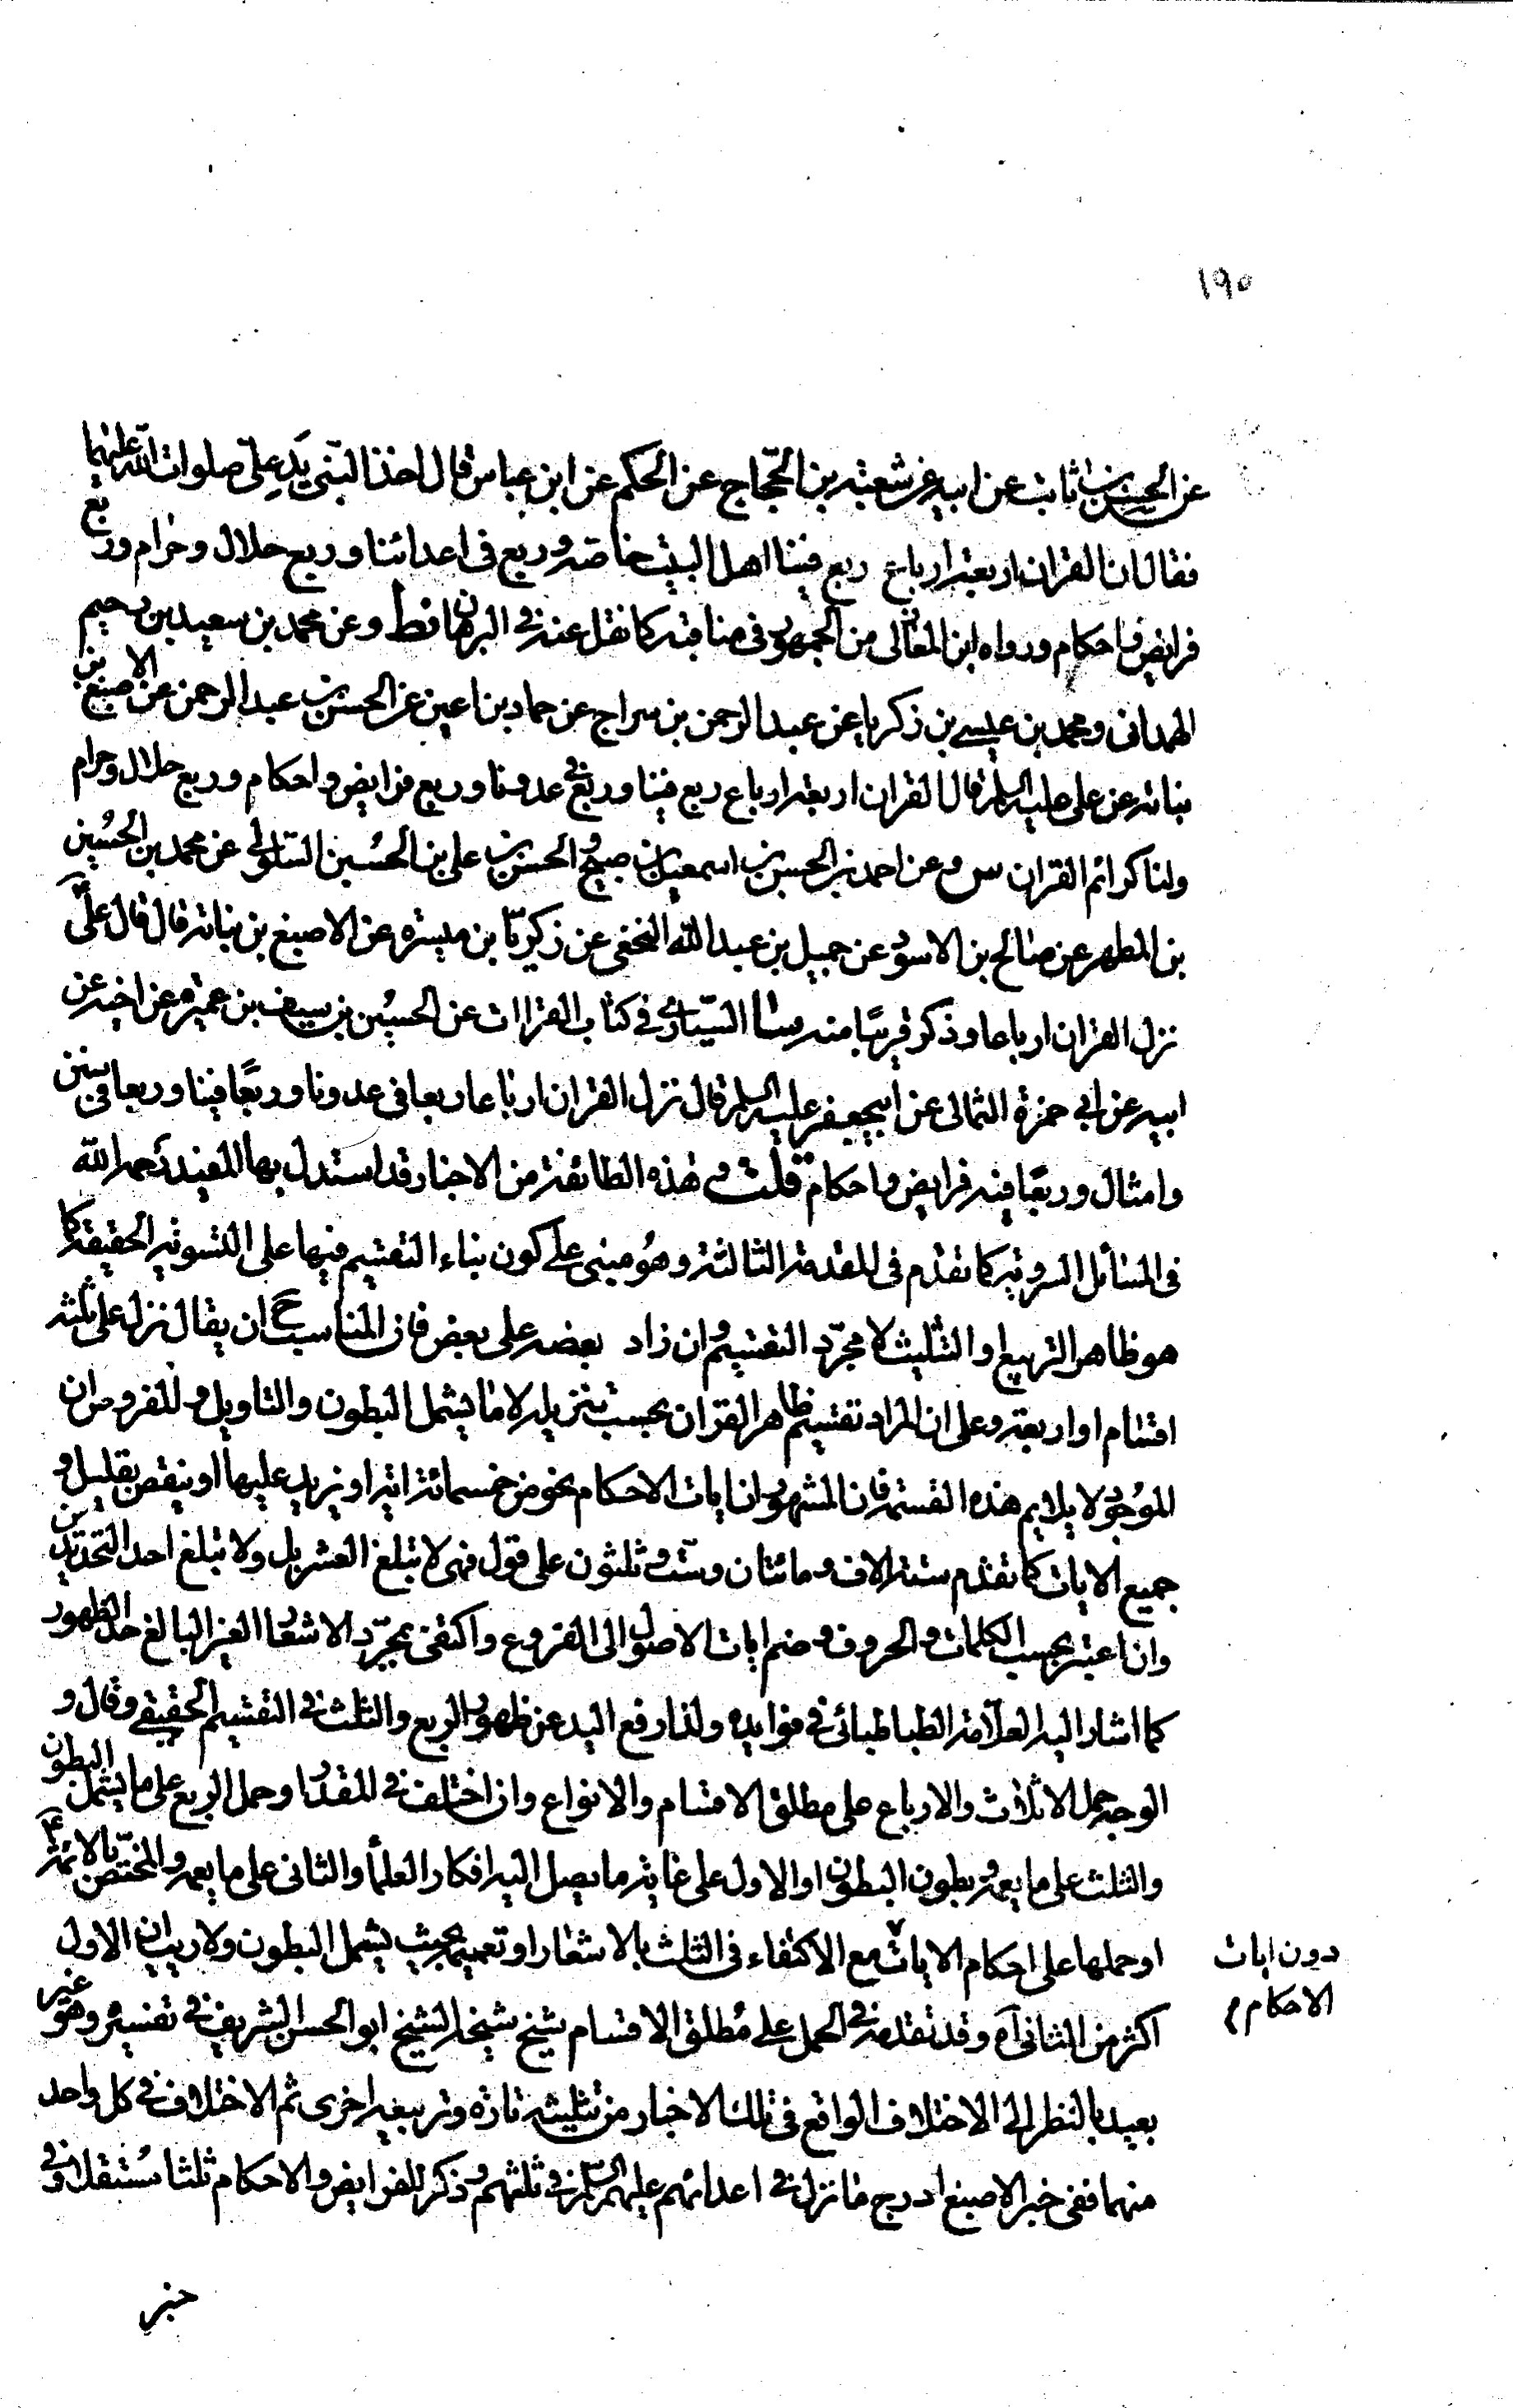 ١٩٥
عن الحسن بن ثابت عن ابيه عن شعبة بن الحجّاج عن الحكم عن ابن عباس قال اخذ النبى يد علىّ صلوات الله عليهما
فقال ان القران اربعة ارباع ربع فينا اهل البيت خاصة وربع فى اعدائنا وربع حلال وحرام وربع
فرايض واحكام ورواه ابن المغازلى من الجمهور فى مناقبه كما نقل عنه فى البرهان فط وعن محمد بن سعيد بن رحيم
الهمدانى ومحمد بن عيسى بن زكريا عن عبد الرحمن بن سراج عن حماد بن اعين عن الحسن بن عبد الرحمن عن الاصبغ بن
نباته عن على عليه السلم قال القران اربعة ارباع ربع فينا وربع فى عدونا وربع فرايض واحكام وربع حلال وحرام
ولنا كرائم القران س وعن احمد بن الحسن بن اسمعيل بن صبيح والحسن بن على بن الحسين السلولى عن محمد بن الحسين
بن المطهر عن صالح بن الاسود عن جميل بن عبد الله النخعى عن زكريّا بن ميسرة عن الاصبغ بن نباته قال قال علىّ
نزل القران ارباعا وذكر قريبًا منه السيّارى فى كتاب القراات عن الحسين بن سيف بن عميرة عن اخيه عن
ابيه عن ابى حمزة الثمالى عن ابيجعفر عليه السلم قال نزل القران ارباعا ربعا فى عدونا وربعًا فينا وربعا فى سنن
وامثال وربعًا فيه فرايض واحكام قلت وهذه الطائفة من الاخبار قد استدل بها المفيد رحمه الله
فى المسائل السروية كما تقدم فى المقدمة الثالثة وهو مبنى على كون بناء التقسيم فيها على التسوية الحقيقة كما
هو ظاهر التربيع او التثليث لا مجرّد التقسيم وان زاد بعضه على بعض فان المناسب ح ان يقال نزل على ثلثة
اقسام او اربعة وعلى ان المراد تقسيم ظاهر القران بحسب تنزيله لا ما يشمل البطون والتاويل والمفروض ان
الموجود لا يلايم هذه القسمة فان المشهور ان ايات الاحكام نحو من خمسمائة اية او يزيد عليها او ينقص بقليل و
جميع الايات كما تقدم ستة الاف ومائتان وستّ وثلثون على قول فهى لا تبلغ العشر بل ولا تبلغ احد التحديدين
وان اعتبر بحسب الكلمات والحروف وضم ايات الاصول الى الفروع واكتفى بمجرّد الاشعار الغير البالغ حدّ الظهور
كما اشار اليه العلّامة الطباطبائى فى فوايده ولذا رفع اليد عن ظهور الربع والثلث فى التقسيم الحقيقى وقال و
الوجه حمل الاثلاث والارباع على مطلق الاقسام والانواع وان اختلف فى المقدار او حمل الربع على ما يشمل البطون
والثلث على ما يعمه وبطون البطون او الاول على غاية ما يصل اليه افكار العلماء والثانى على ما يعمه والمختصّ بالائمة ع
او حملها على احكام الايات مع الاكتفاء فى الثلث بالاشعار او تعميمه بحيث يشمل البطون ولا ريب ان الاول
دون ايات
الاحكام م
اكثر من الثانى آه وقد تقدمه فى الحمل على مطلق الاقسام شيخ شيخنا الشيخ ابو الحسن الشريف فى تفسيره وهو غير
بعيد بالنظر الى الاختلاف الواقع فى تلك الاخبار من تثليثه تارة وتربيعه اخرى ثم الاختلاف فى كل واحد
منهما ففى خبر الاصبغ ادرج ما نزل فى اعدائهم عليهم السلم فى ثلثهم وذكر للفرايض والاحكام ثلثا مستقلا وفى
خبر